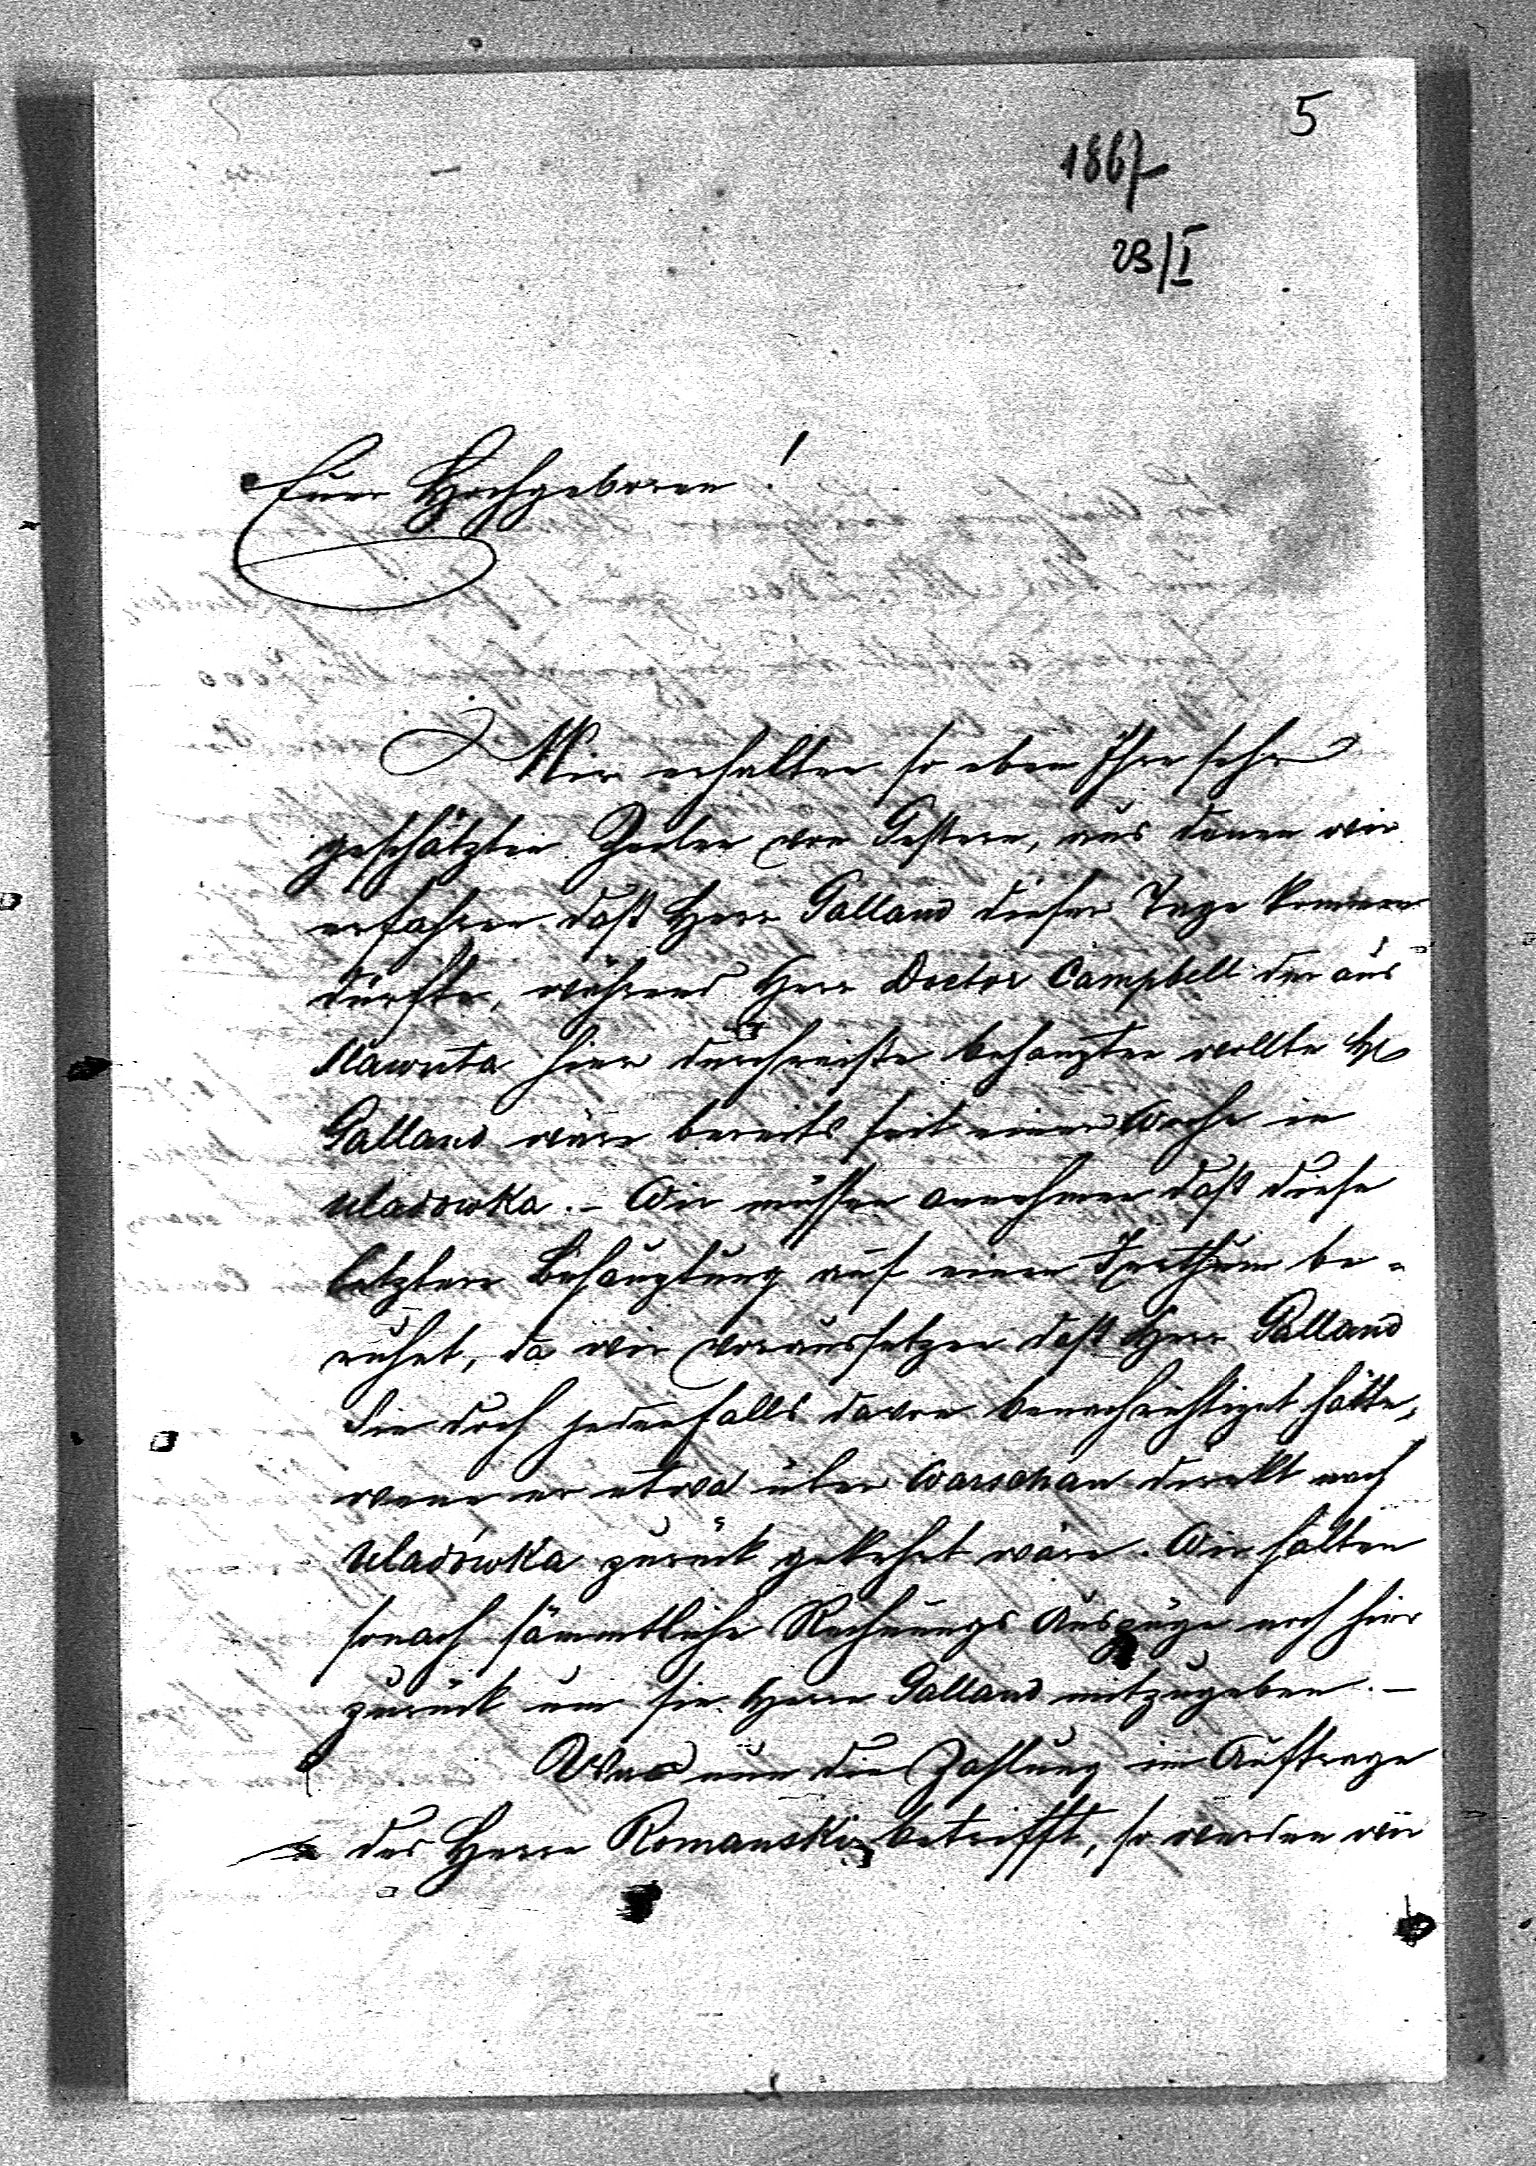 5
1867
23/I
Euer Hochgeboren!
Wir erhalten so eben Ihre sehr
geschätzten Zeilen von Gestern, aus denen wir
erfahren daß Herr Galland dieser Tage kommen
dürfte, während Herr Doctor Campbell der aus
Slawuta hier durchreiste behaupten wollte H
Galland wäre bereits seit einer Woche in
Uladowka. – Wir müssen annehmen daß diese
letztere Behauptung auf einem Irrthum be-
ruhet, da wir voraussetzen daß Herr Galland
Sie doch jedenfalls davon benachrichtiget hätte,
wenn er etwa über Warschau direkt nach
Uladówka zurück gekehrt wäre. Wir halten
sonach sämmtliche Rechnungs Auszüge noch hier
zurück um sie Herrn Galland mitzugeben. –
Was nun die Zahlung im Auftrage
des Herrn Romanski betrifft, so werden wir